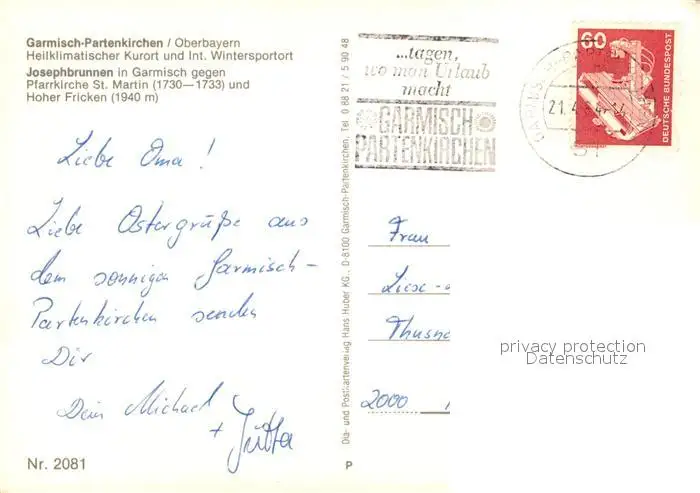 Garmisch-Partenkirchen / Oberbayern
Heilklimatischer Kurort und Int. Wintersportort
Josephbrunnen in Garmisch gegen
Pfarrkirche St. Martin (1730—1733) und
Hoher Fricken (1940 m)
Liebe Oma!
Liebe Ostergrüße aus
dem sonnigen Garmisch-
Partenkirchen senden
Dir
Dein Michael
+ Jutta
Nr. 2081
Dia- und Postkartenverlag Hans Huber KG., D-8100 Garmisch-Partenkirchen, Tel. 0 88 21 / 5 90 48
P
...tagen,
wo man Urlaub
macht
GARMISCH
PARTENKIRCHEN
60
DEUTSCHE BUNDESPOST
Frau
2000
privacy protection
Datenschutz